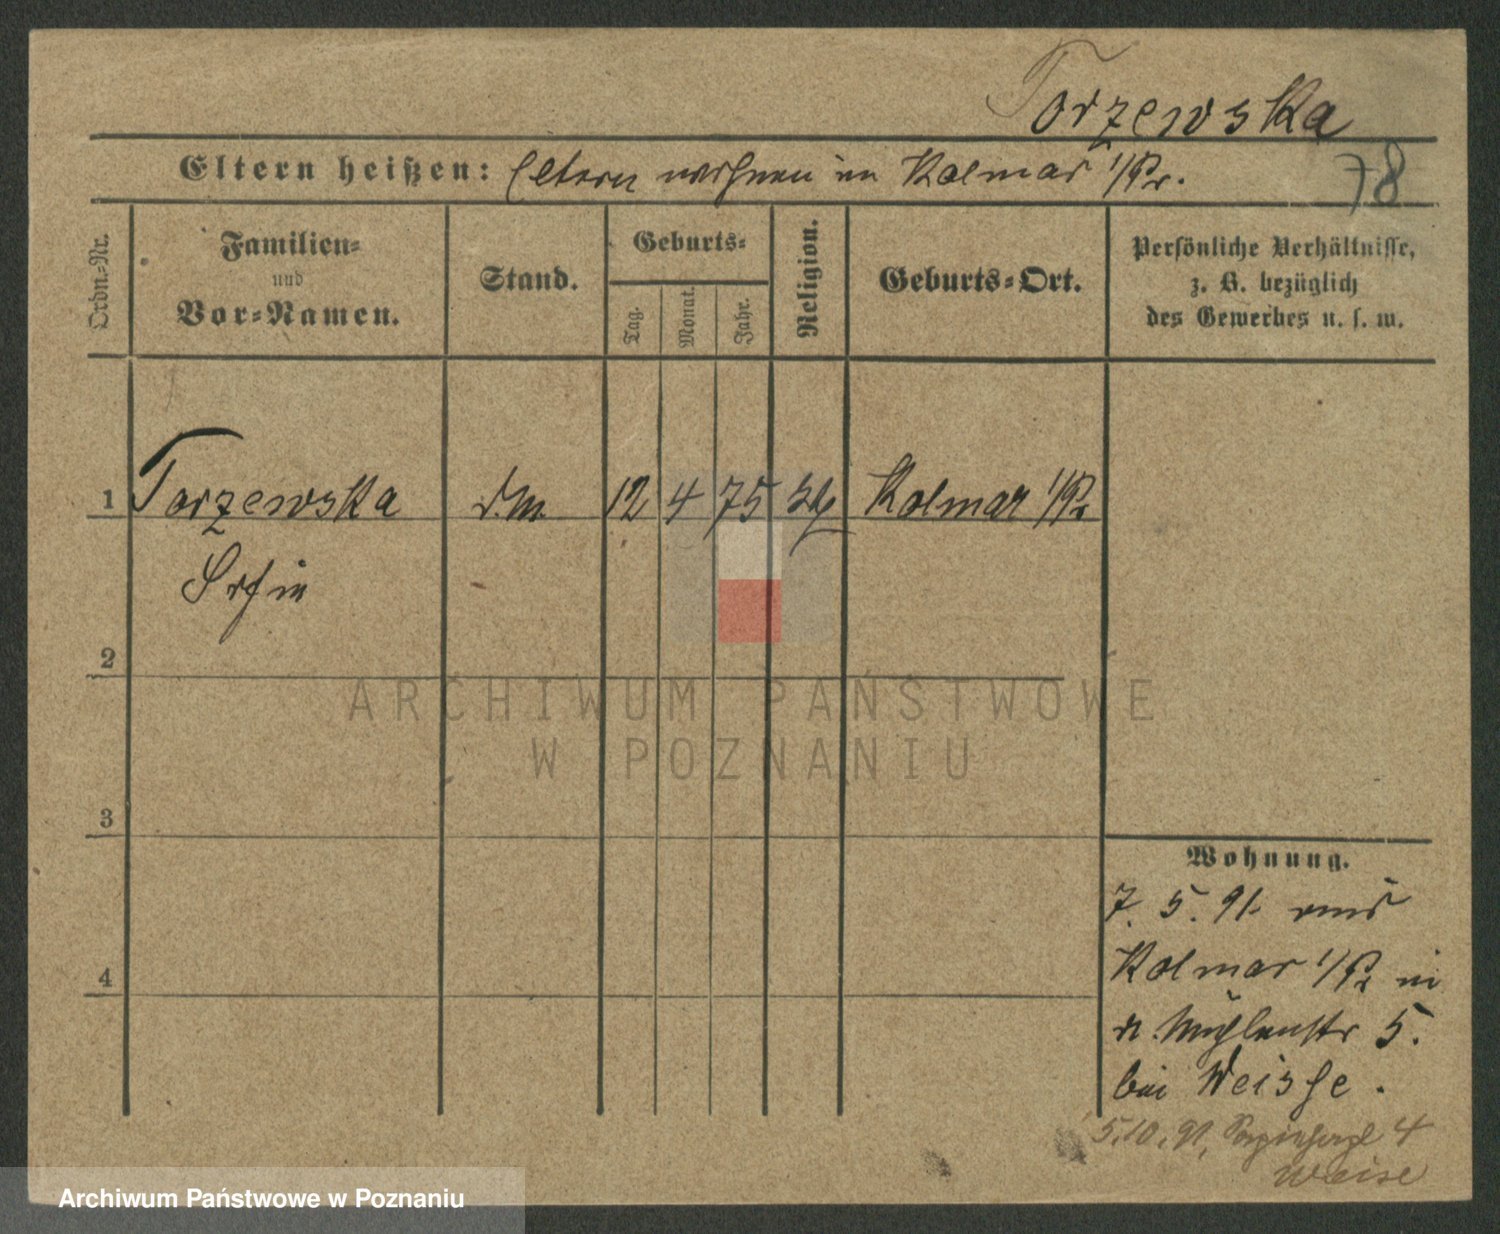 Torzewska
Eltern heißen: Eltern wohnen in Kolmar i/Pr.
78
Ordn.-Nr.
Familien-
und
Vor-Namen.
Stand.
Geburts-
Tag.
Monat.
Jahr.
Religion.
Geburts-Ort.
Persönliche Verhältnisse,
z. B. bezüglich
des Gewerbes u. s. w.
1 Torzewska d. M. 12 4 75 Kolmar i/Pr
2
3
4
Wohnung.
7. 5. 91. aus
Kolmar i/Pr in
Mühlenstr 5.
bei Weisse.
5.10.91, 4
Weise
ARCHIWUM PAŃSTWOWE
W POZNANIU
Archiwum Państwowe w Poznaniu